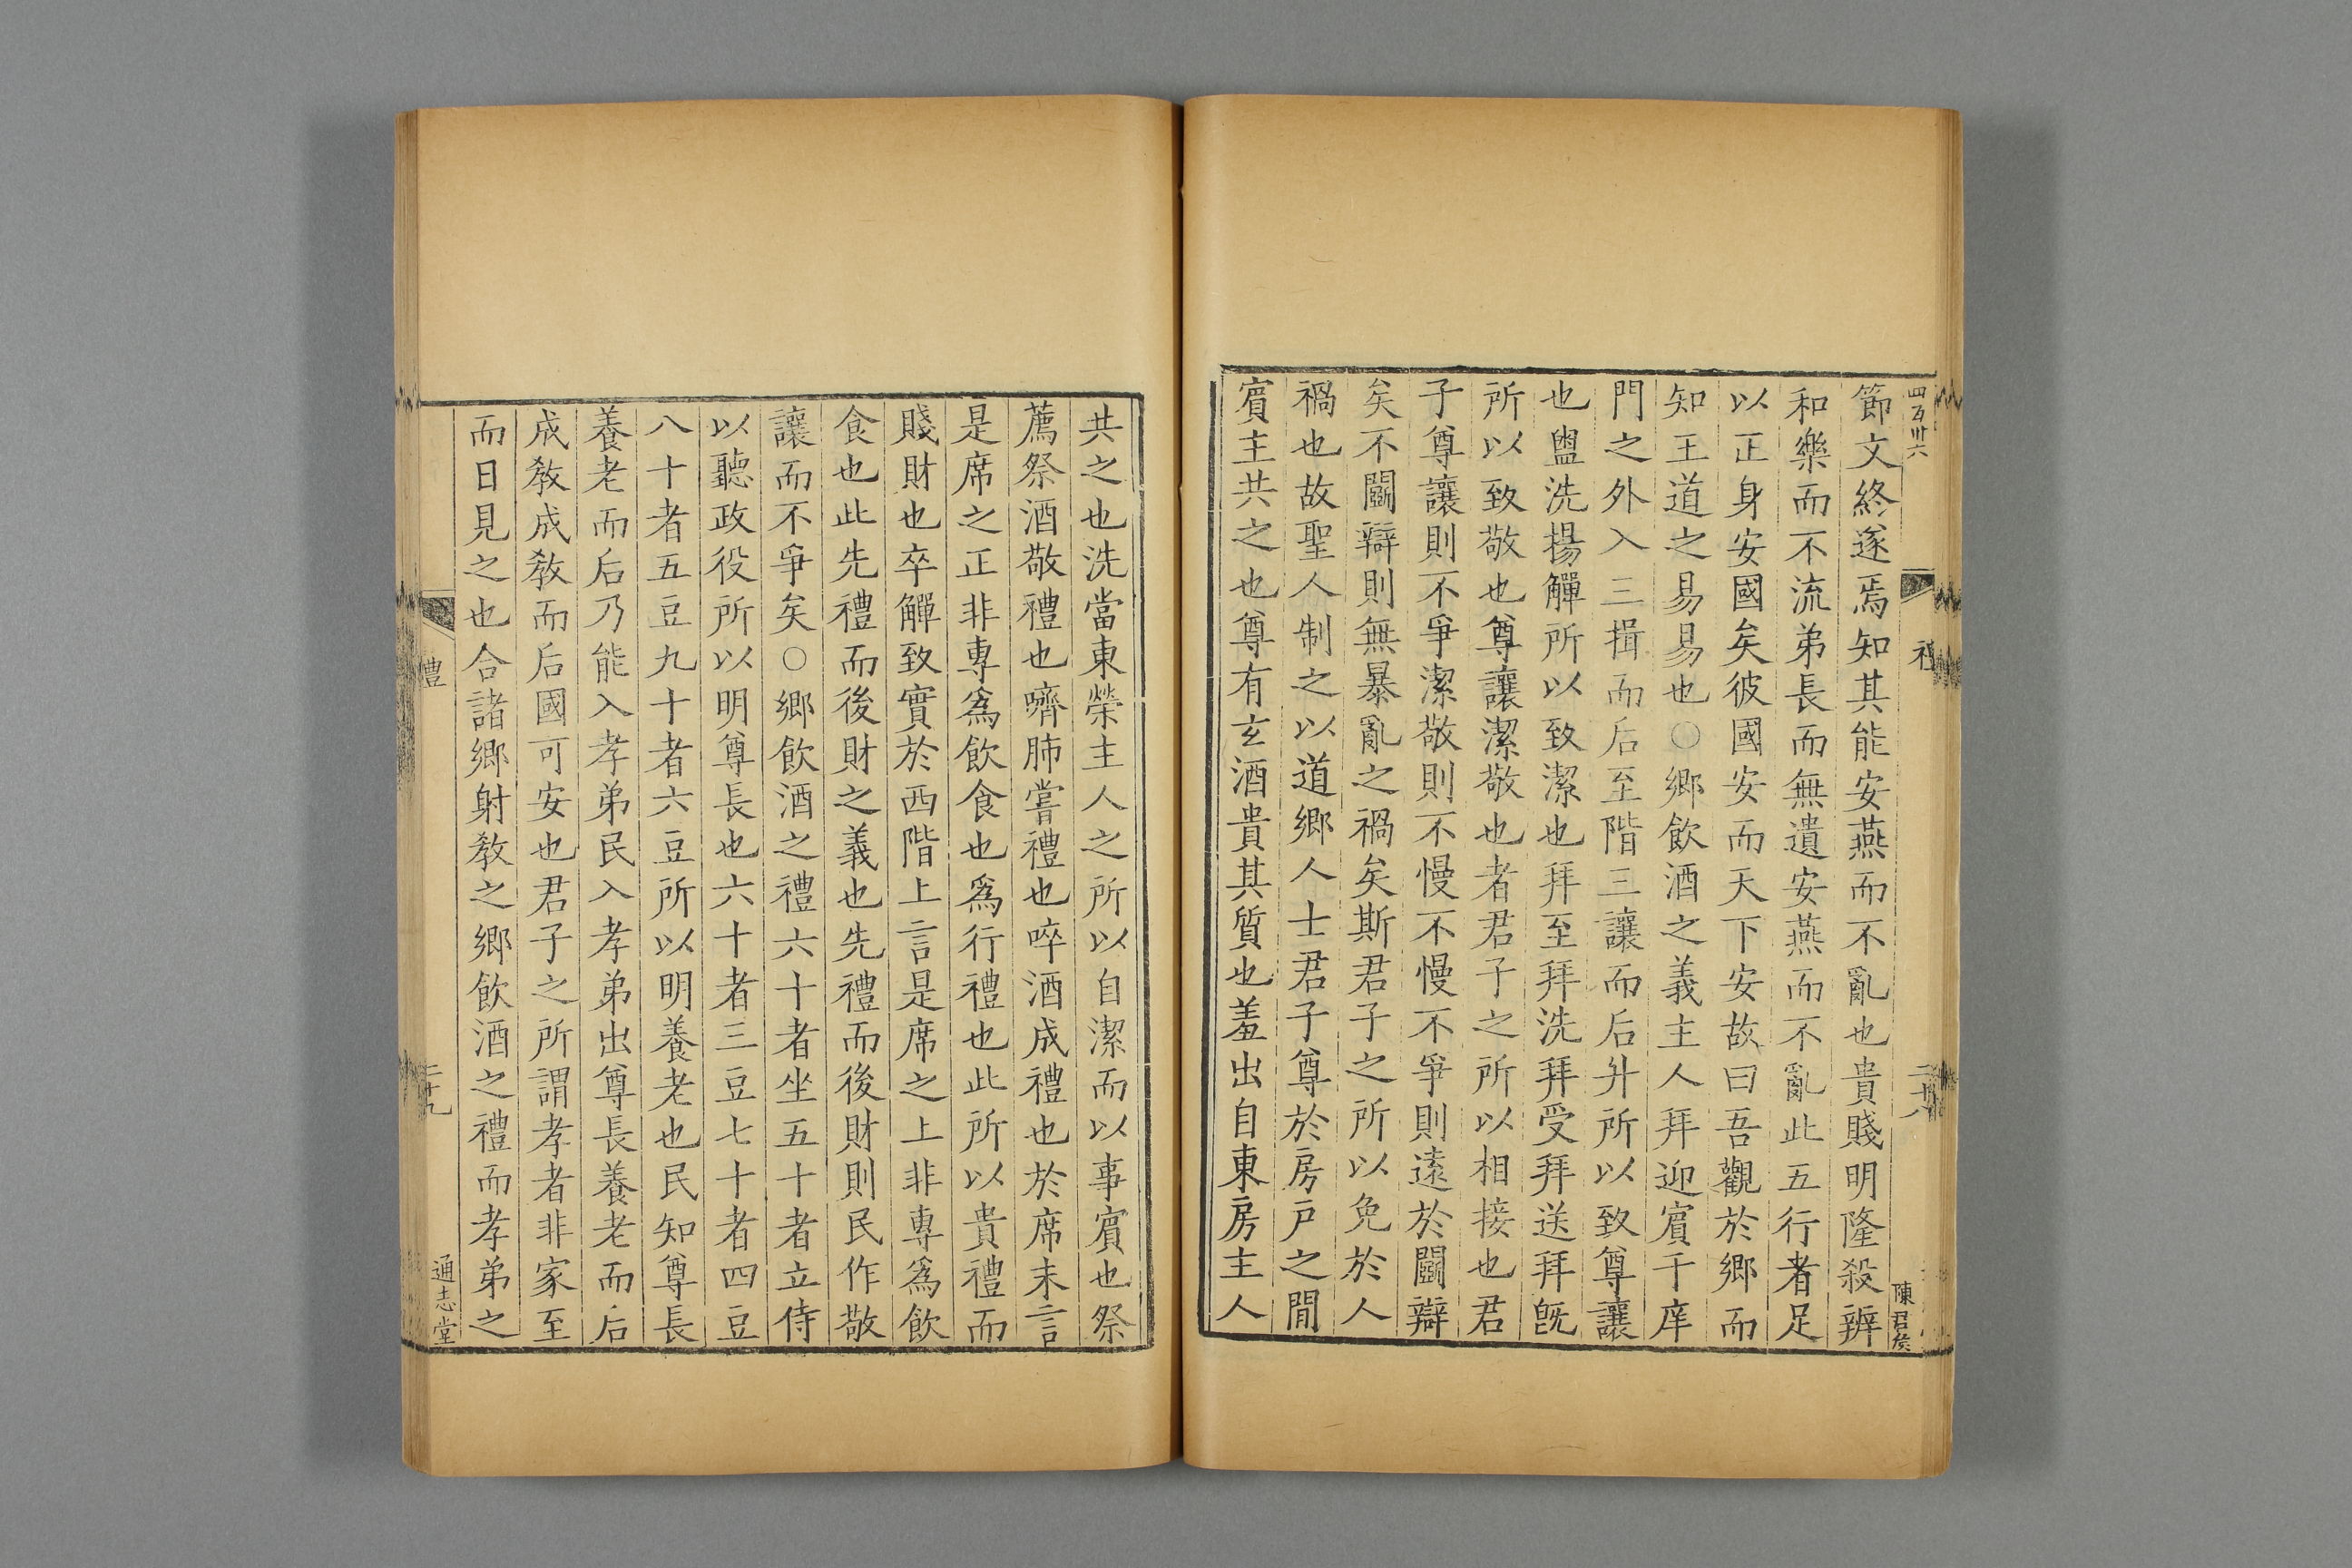 四百卅六
節文終遂焉知其能安燕而不亂也貴賤明隆殺辨
和樂而不流弟長而無遺安燕而不亂此五行者足
以正身安國矣彼國安而天下安故曰吾觀於鄉而
知王道之易易也○鄉飲酒之義主人拜迎賓于庠
門之外入三揖而后至階三讓而后升所以致尊讓
也盥洗揚觶所以致潔也拜至拜洗拜受拜送拜旣
所以致敬也尊讓潔敬也者君子之所以相接也君
子尊讓則不爭潔敬則不慢不慢不爭則遠於鬭辯
矣不鬭辯則無暴亂之禍矣斯君子之所以免於人
禍也故聖人制之以道鄉人士君子尊於房戶之閒
賓主共之也尊有玄酒貴其質也羞出自東房主人
陳君矦
共之也洗當東榮主人之所以自潔而以事賓也祭
薦祭酒敬禮也嚌肺嘗禮也啐酒成禮也於席末言
是席之正非專爲飲食也爲行禮也此所以貴禮而
賤財也卒觶致實於西階上言是席之上非專爲飲
食也此先禮而後財之義也先禮而後財則民作敬
讓而不爭矣○鄉飲酒之禮六十者坐五十者立侍
以聽政役所以明尊長也六十者三豆七十者四豆
八十者五豆九十者六豆所以明養老也民知尊長
養老而后乃能入孝弟民入孝弟出尊長養老而后
成教成教而后國可安也君子之所謂孝者非家至
而日見之也合諸鄉射教之鄉飲酒之禮而孝弟之
禮
二十九
通志堂